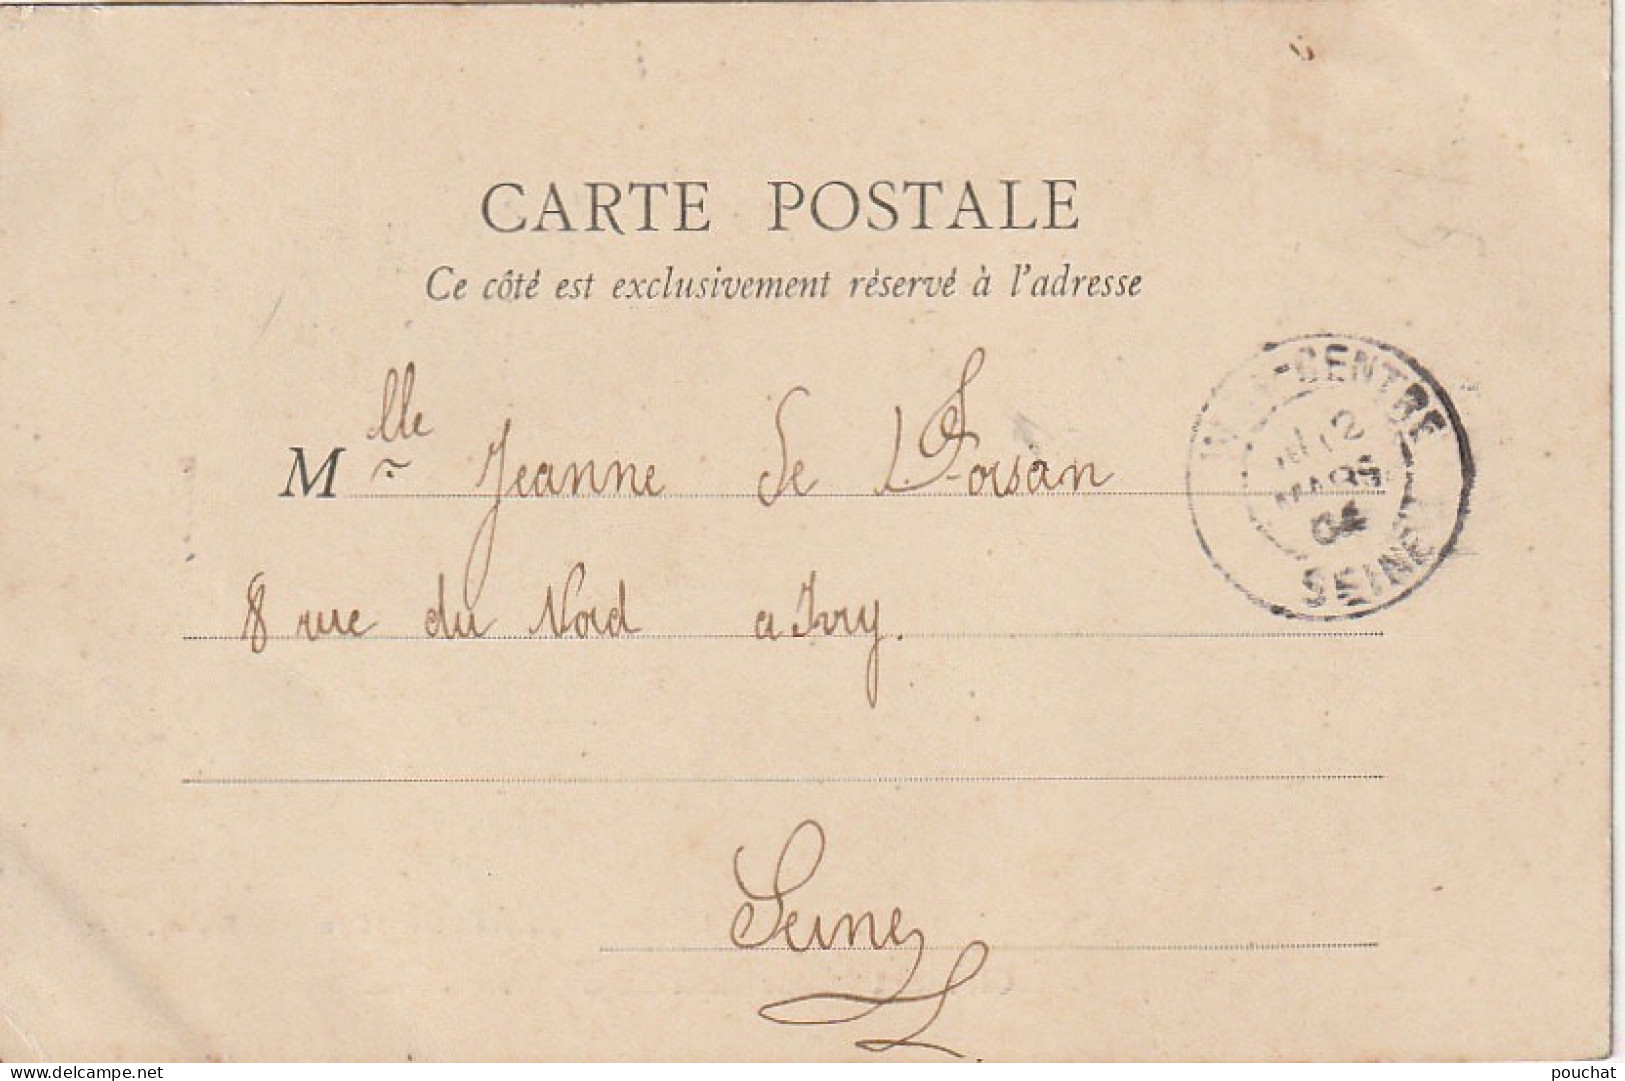 CARTE POSTALE
Ce côté est exclusivement réservé à l'adresse
Mlle Jeanne de
8 rue du Nord a Ivry.
Seine
CENTRE
12
MARS
04
SEINE
delcampe.net
pouchat